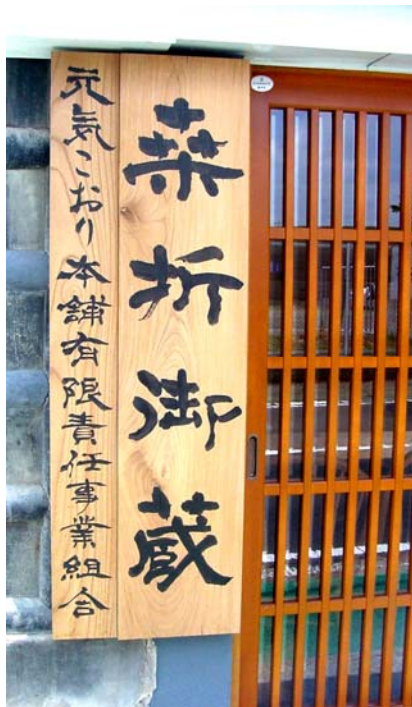 桒折御蔵
元気こおり本舗有限責任事業組合